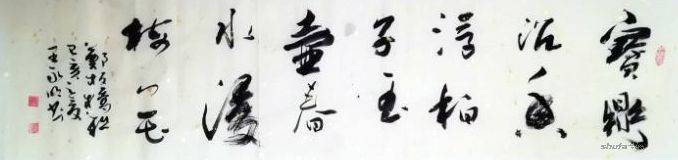 寶鼎
沉香
浮柏
子玉
壺春
水浸
梅花
鄭板橋聯
己亥之夏
shufa